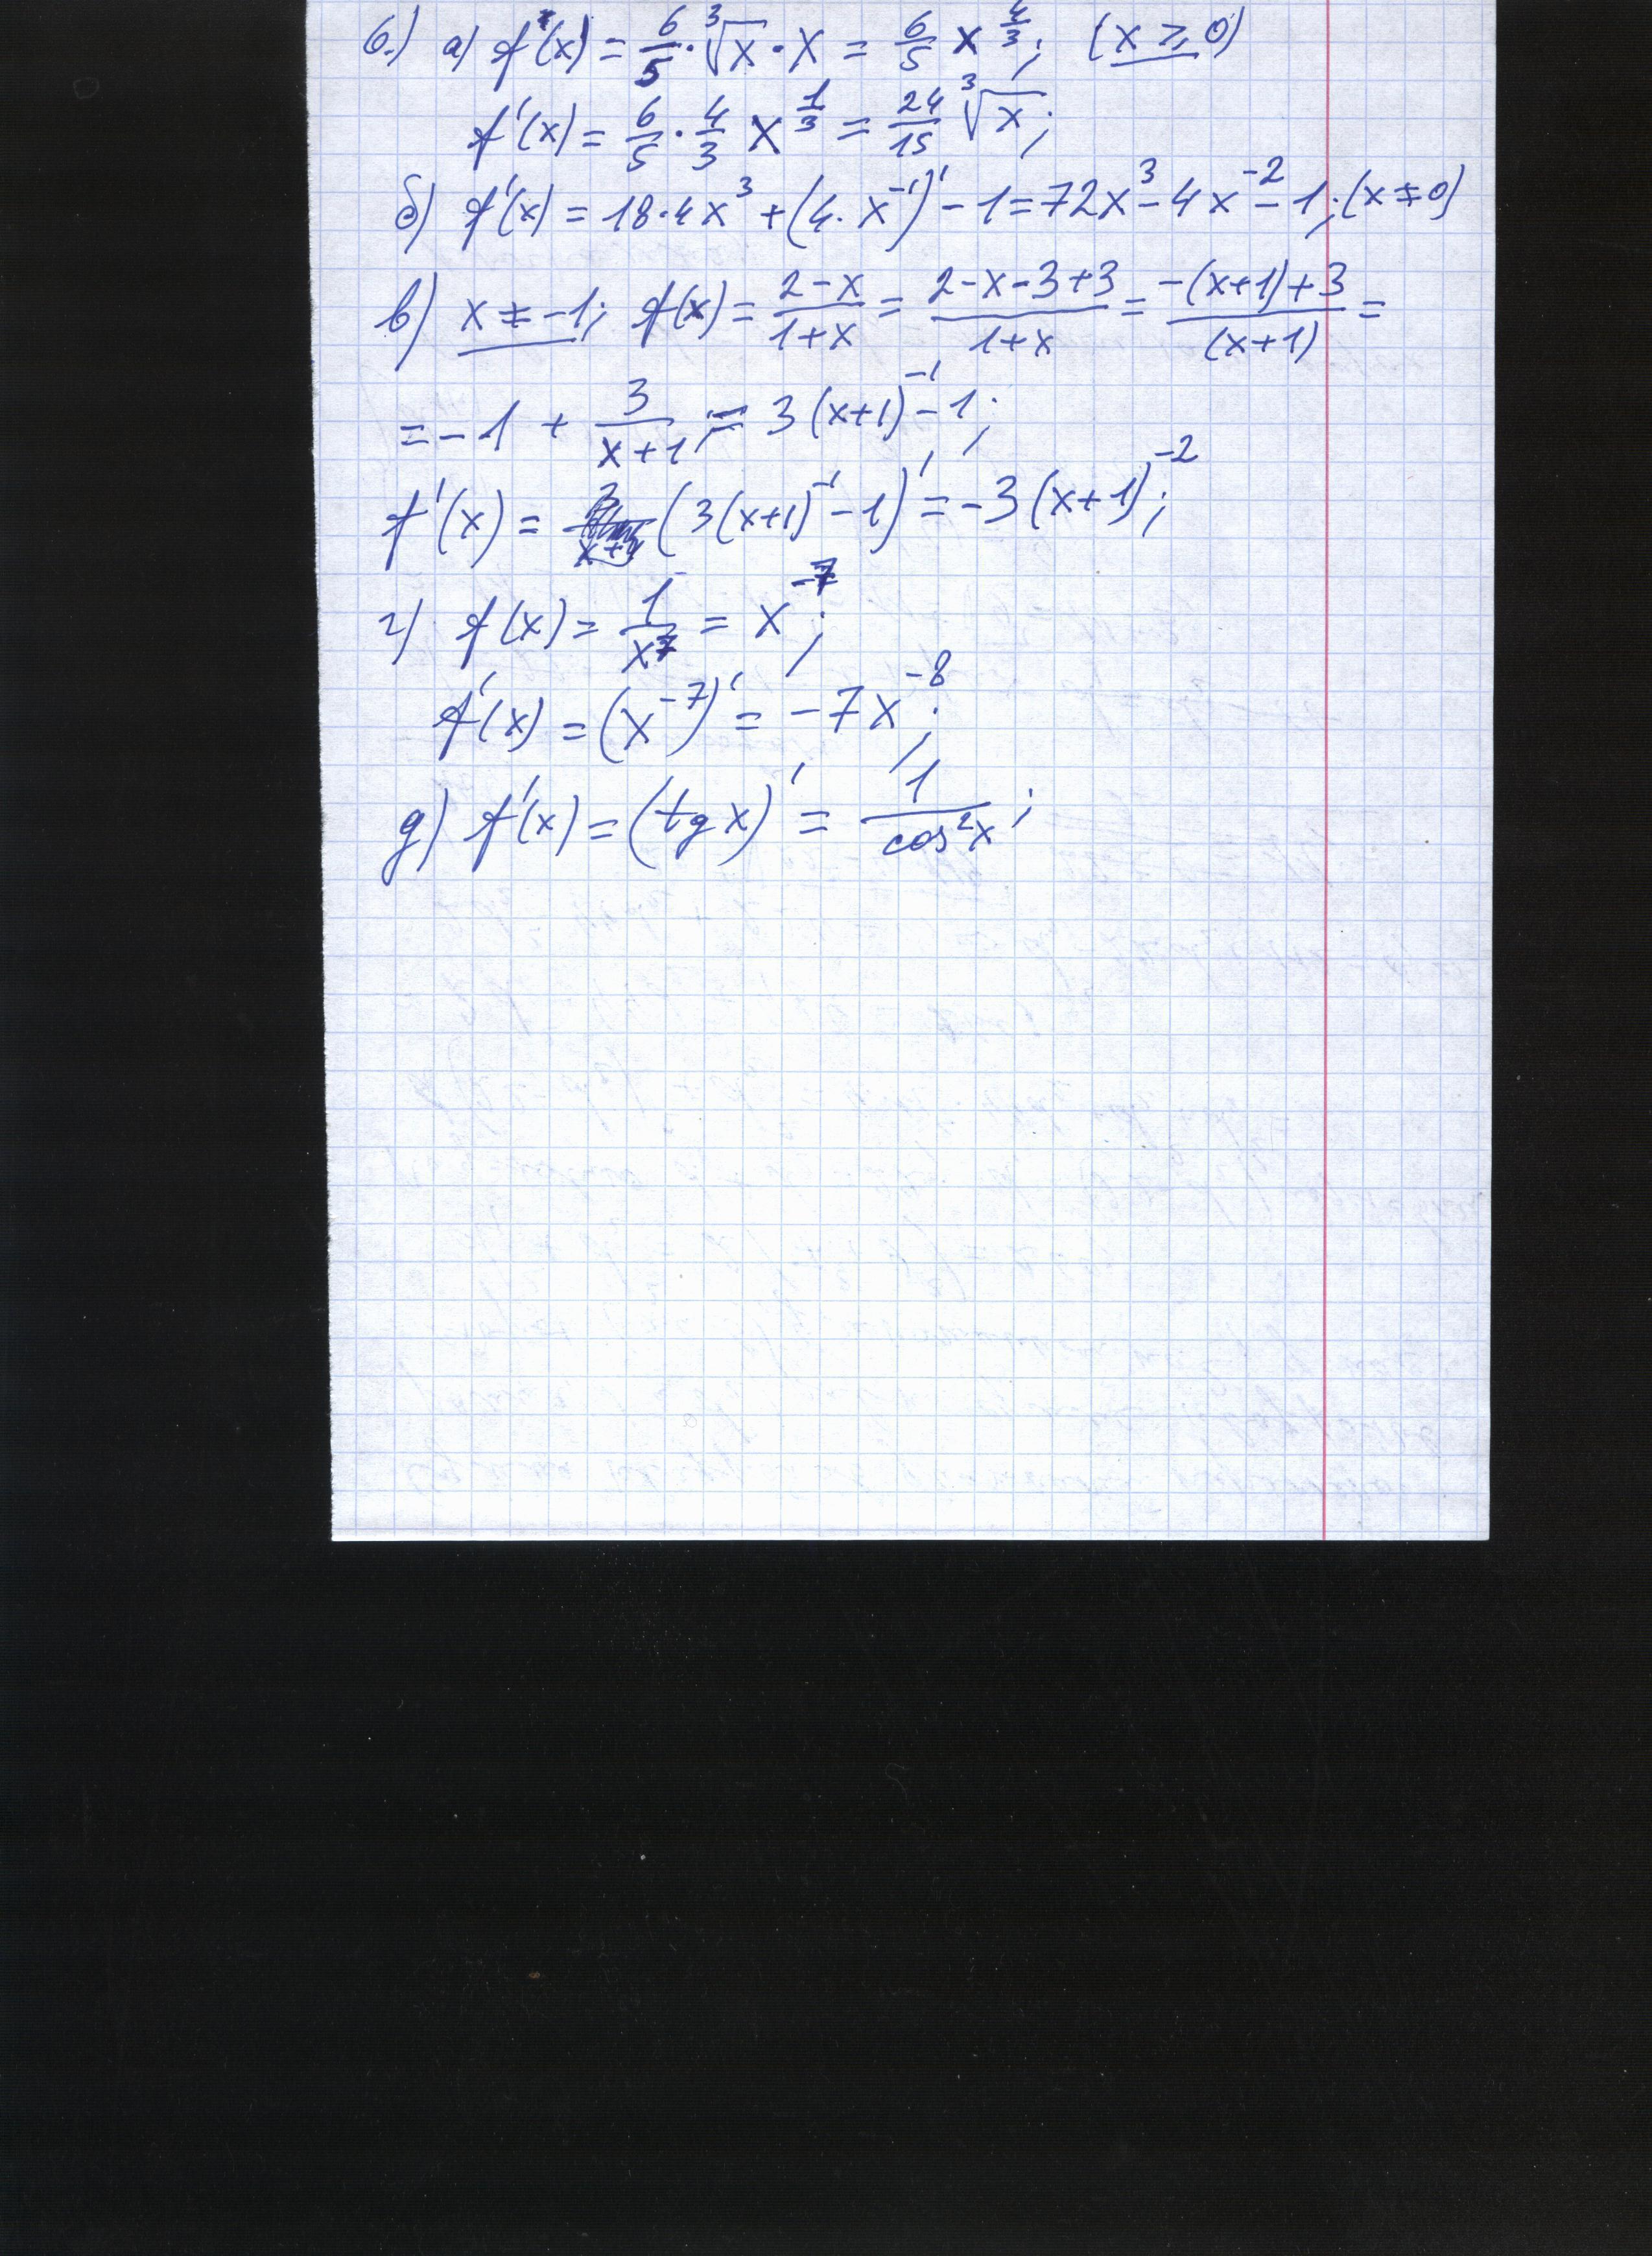 6.) а) f(x) = 6/5 · ∛x · x = 6/5 x^(4/3); (x ⩾ 0)
f'(x) = 6/5 · 4/3 x^(1/3) = 24/15 ∛x;
б) f'(x) = 18·4x³ + (4·x⁻¹)' − 1 = 72x³ − 4x⁻² − 1; (x ≠ 0)
в) x ≠ −1; f(x) = (2−x)/(1+x) = (2−x−3+3)/(1+x) = (−(x+1)+3)/(x+1) =
= −1 + 3/(x+1) = 3(x+1)⁻¹ − 1;
f'(x) = (3(x+1)⁻¹ − 1)' = −3(x+1)⁻²;
г) f(x) = 1/x⁷ = x⁻⁷;
f'(x) = (x⁻⁷)' = −7x⁻⁸;
д) f'(x) = (tg x)' = 1/cos²x;